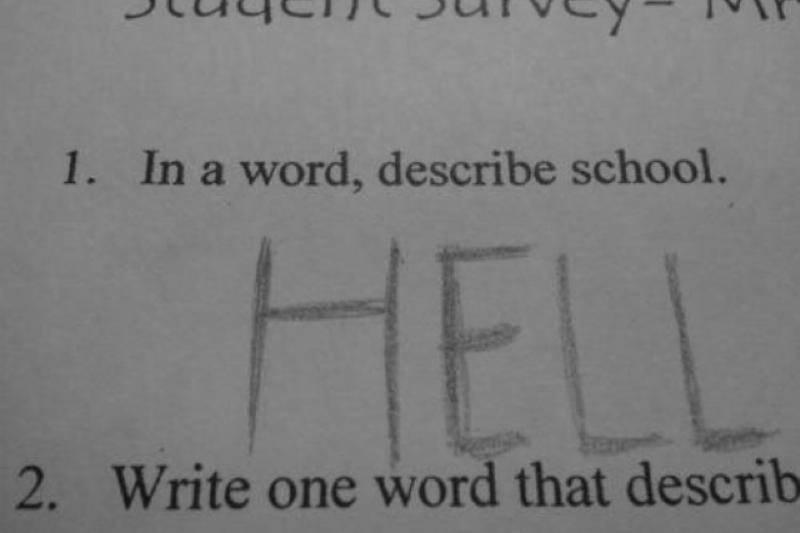 Student Survey-
1. In a word, describe school.
HELL
2. Write one word that